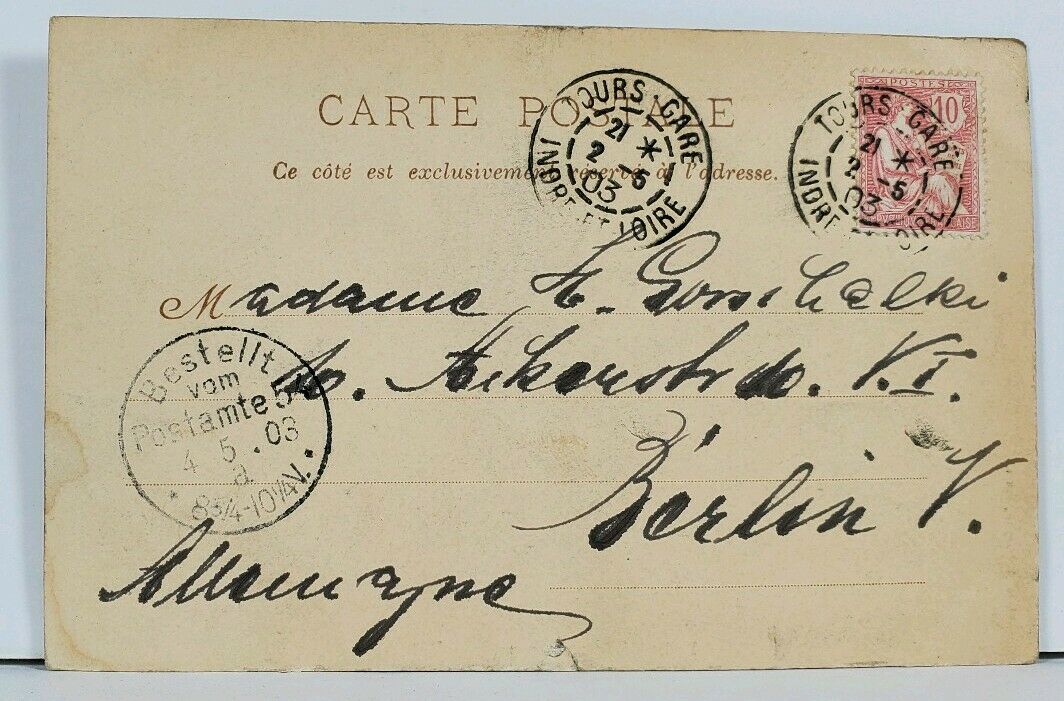 CARTE POSTALE
Ce côté est exclusivement réservé à l'adresse.
TOURS-GARE
21 *
2 -5
03
INDRE-ET-LOIRE
POSTES
10
TOURS-GARE
21 *
2 -5
03
INDRE-ET-LOIRE
Madame
V.I.
Berlin
Allemagne
Bestellt
vom
Postamte 54
4 5 . 03
a
8¾-10¼V.